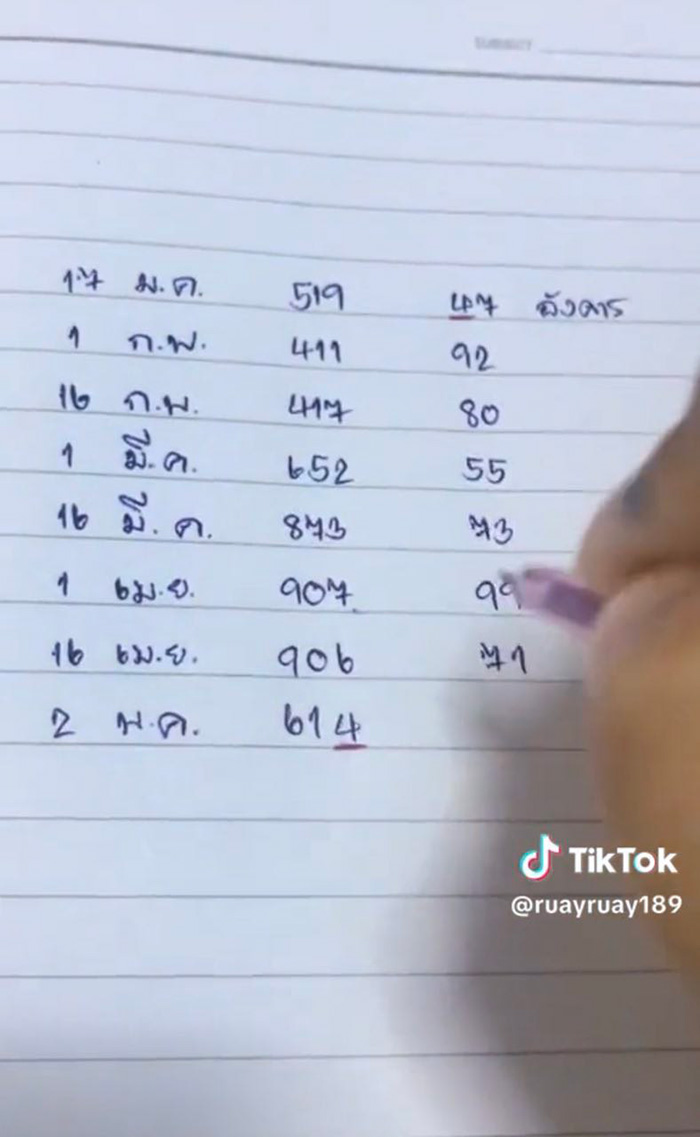 SUBJECT
17 ม.ค. 519 47 อังคาร
1 ก.พ. 411 92
16 ก.พ. 417 80
1 มี.ค. 652 55
16 มี.ค. 873 73
1 เม.ย. 907 99
16 เม.ย. 906 71
2 พ.ค. 614
TikTok
@ruayruay189